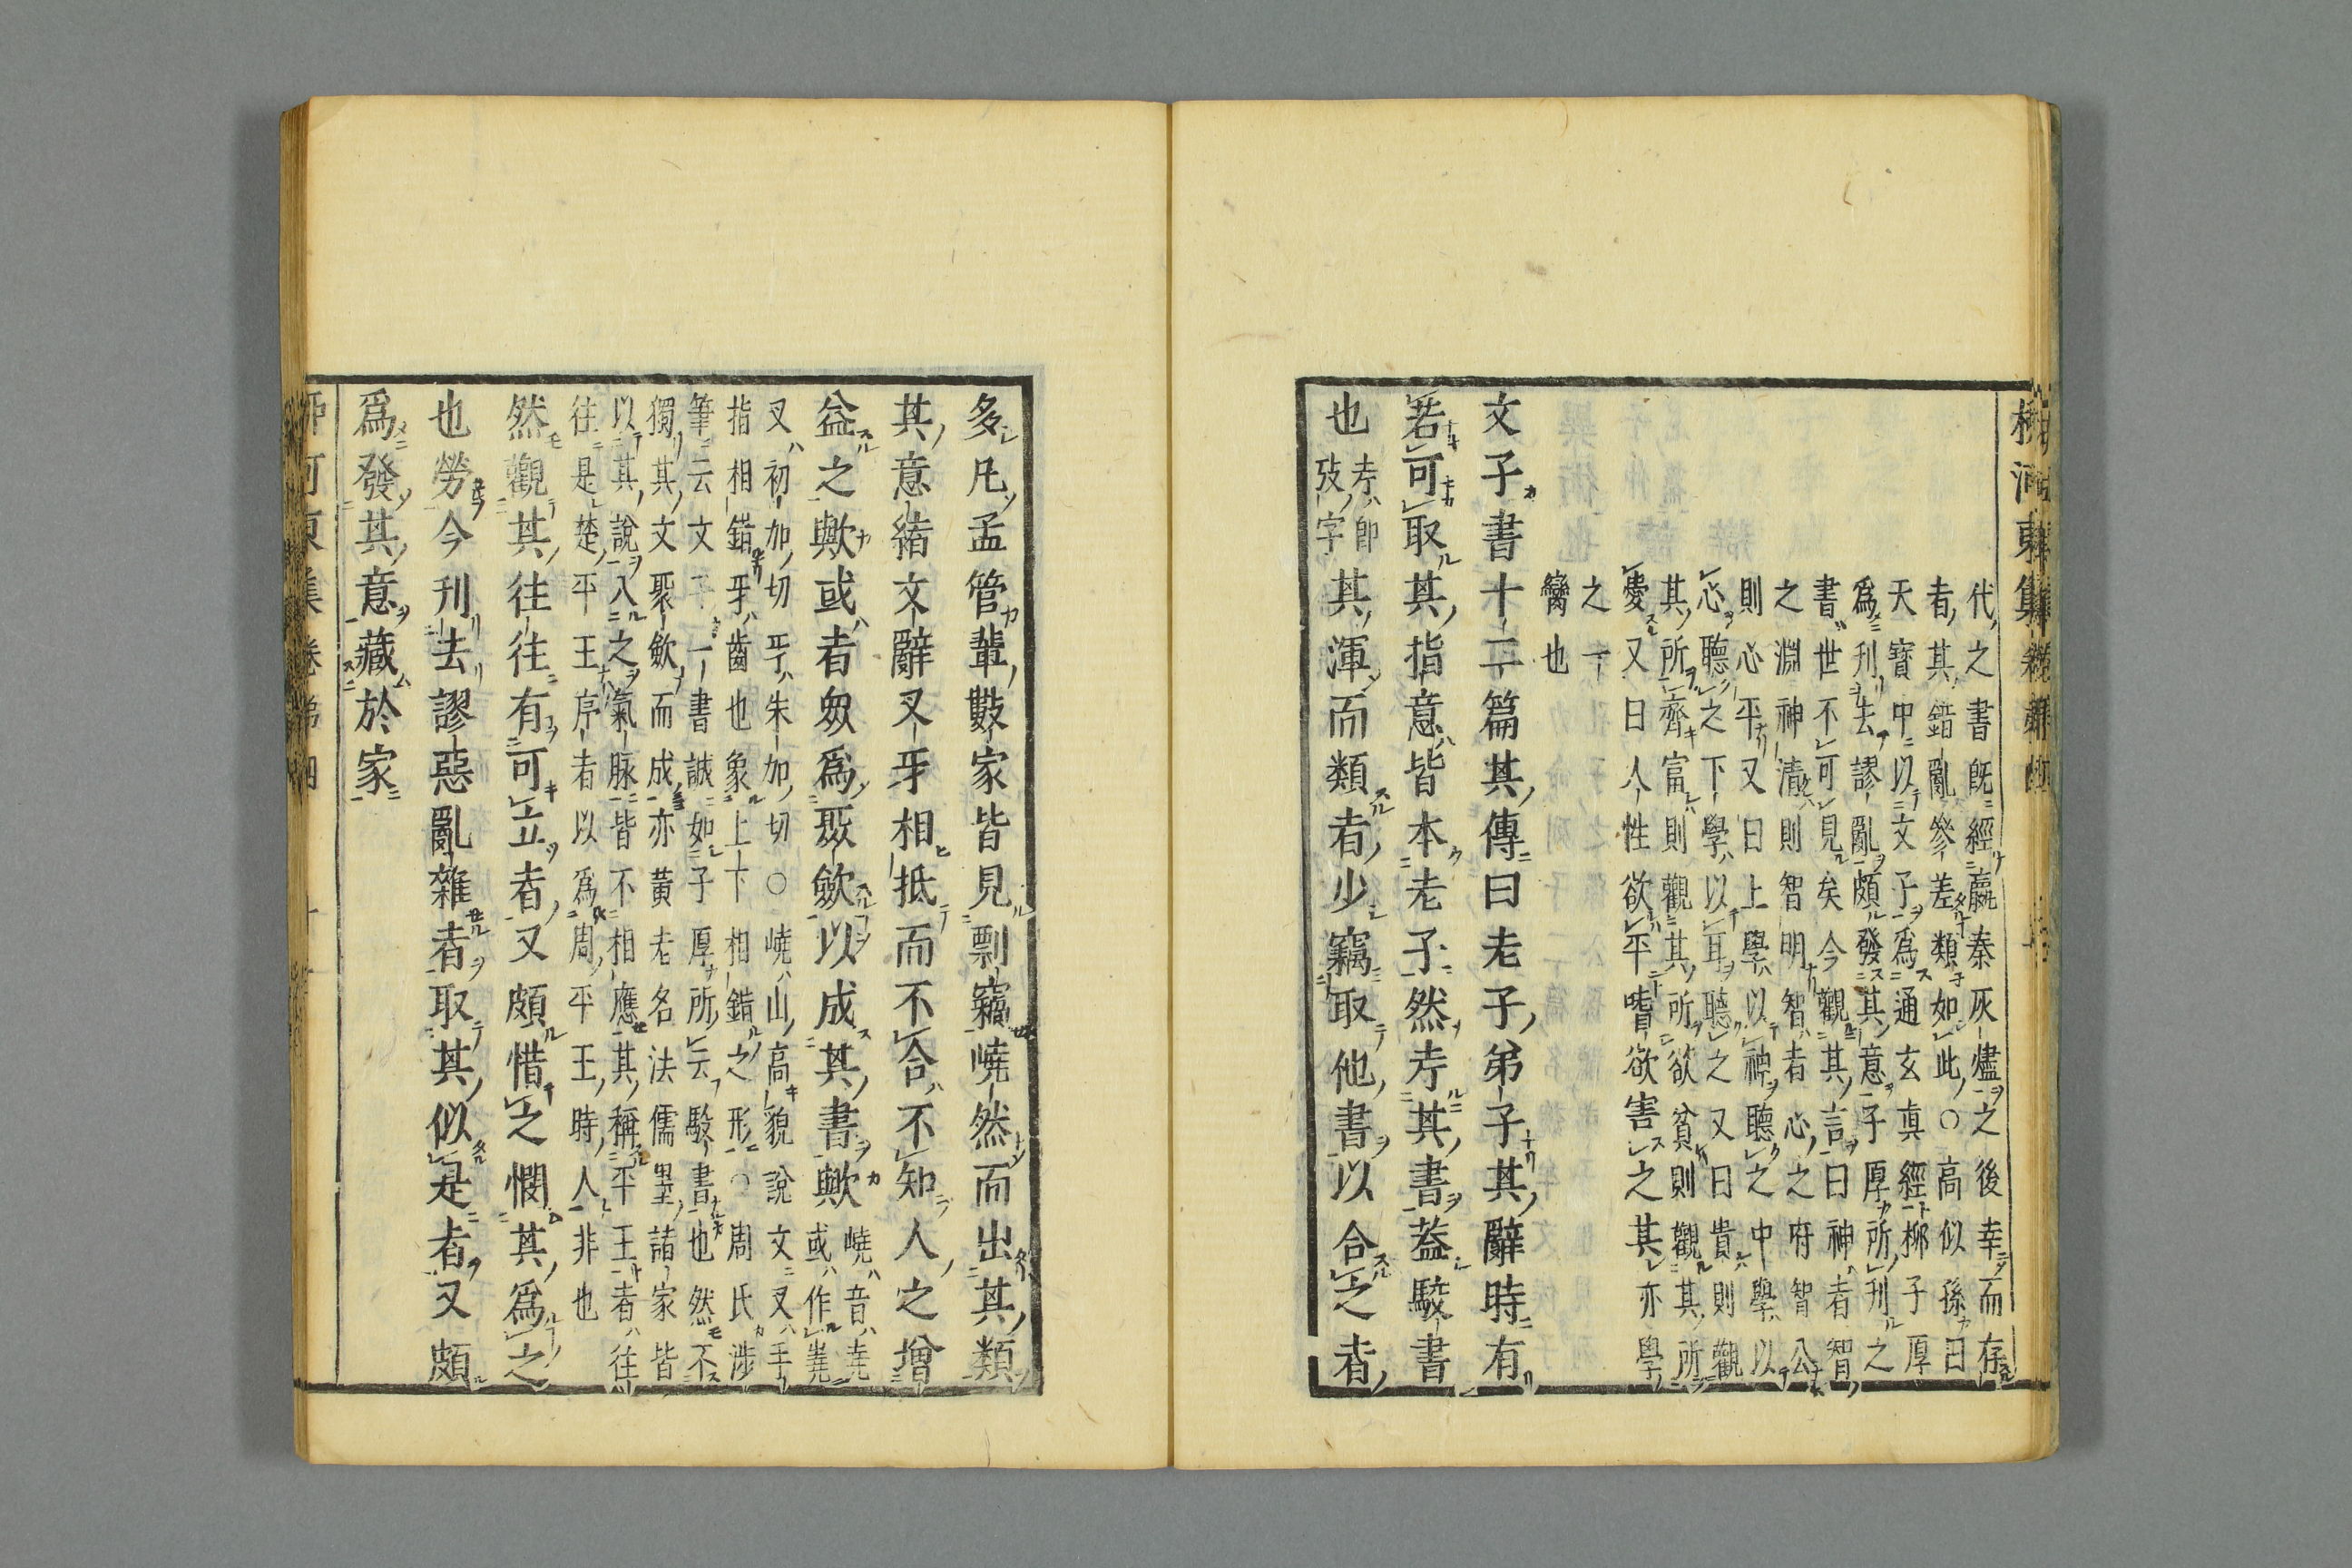 柳河東集卷第四
代之書既經嬴秦灰燼之後幸而存
者其錯亂參差類如此○高似孫曰
天寶中以文子爲通玄真經柳子厚
爲刊去謬亂頗發其意子厚所刊之
書世不可見矣今觀其言曰神者智
之淵神清則智明智者心之府智公
則心平又曰上學以神聽之中學以
心聽之下學以耳聽之又曰貴則觀
其所齊富則觀其所欲貧則觀其所
愛又曰人性欲平嗜欲害之其亦學
之一
臠也
文子書十二篇其傳曰老子弟子其辭時有
若可取其指意皆本老子然考其書蓋駁書
也考卽攷字其渾而類者少竊取他書以合之者
多凡孟管輩數家皆見剽竊嶢然而出其類
其意緒文辭叉牙相抵而不合不知人之增
益之歟或者衆爲聚斂以成其書歟嶢音堯或作嶤
叉初加切牙朱加切○嶢山高貌說文叉手
指相錯牙齒也象上下相錯之形○周氏涉
筆云文子一書誠如子厚所云駁書也然不
獨其文聚斂而成亦黃老名法儒墨諸家皆
以其說入之氣脉皆不相應其稱平王者往
往是楚平王序者以爲周平王時人非也
然觀其往往有可立者又頗惜之憫其爲之
也勞今刊去謬惡亂雜者取其似是者又頗
爲發其意藏於家
柳河東集卷第四 十一